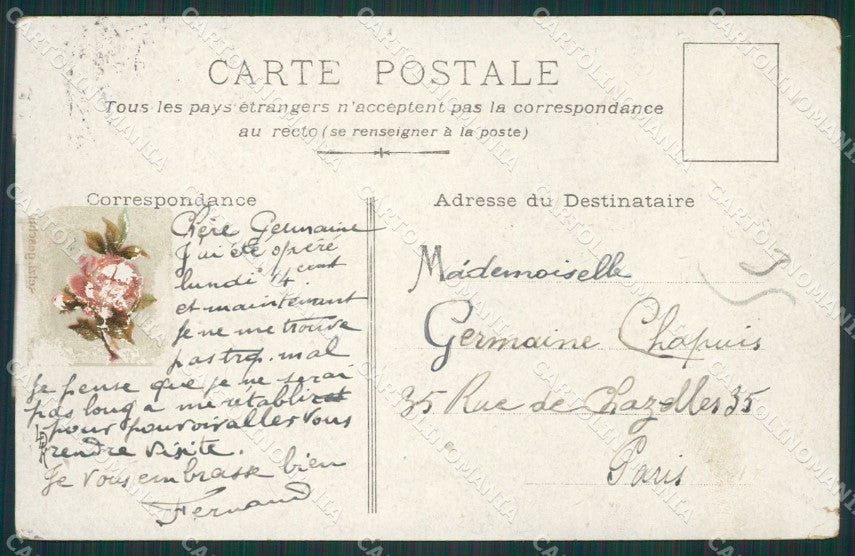 CARTE POSTALE
Tous les pays étrangers n'acceptent pas la correspondance
au recto (se renseigner à la poste)
Correspondance
Chère Germaine
J'ai été opéré
lundi 14 court
et maintenant
je ne me trouve
pas trop mal
Je pense que je ne serai
pas long a me rétablir et
pour pouvoir aller vous
rendre visite.
Je vous embrasse bien
Fernand
Adresse du Destinataire
Mademoiselle
Germaine Chapuis
35 Rue de Chazelles 35
Paris
CARTOLINOMANIA